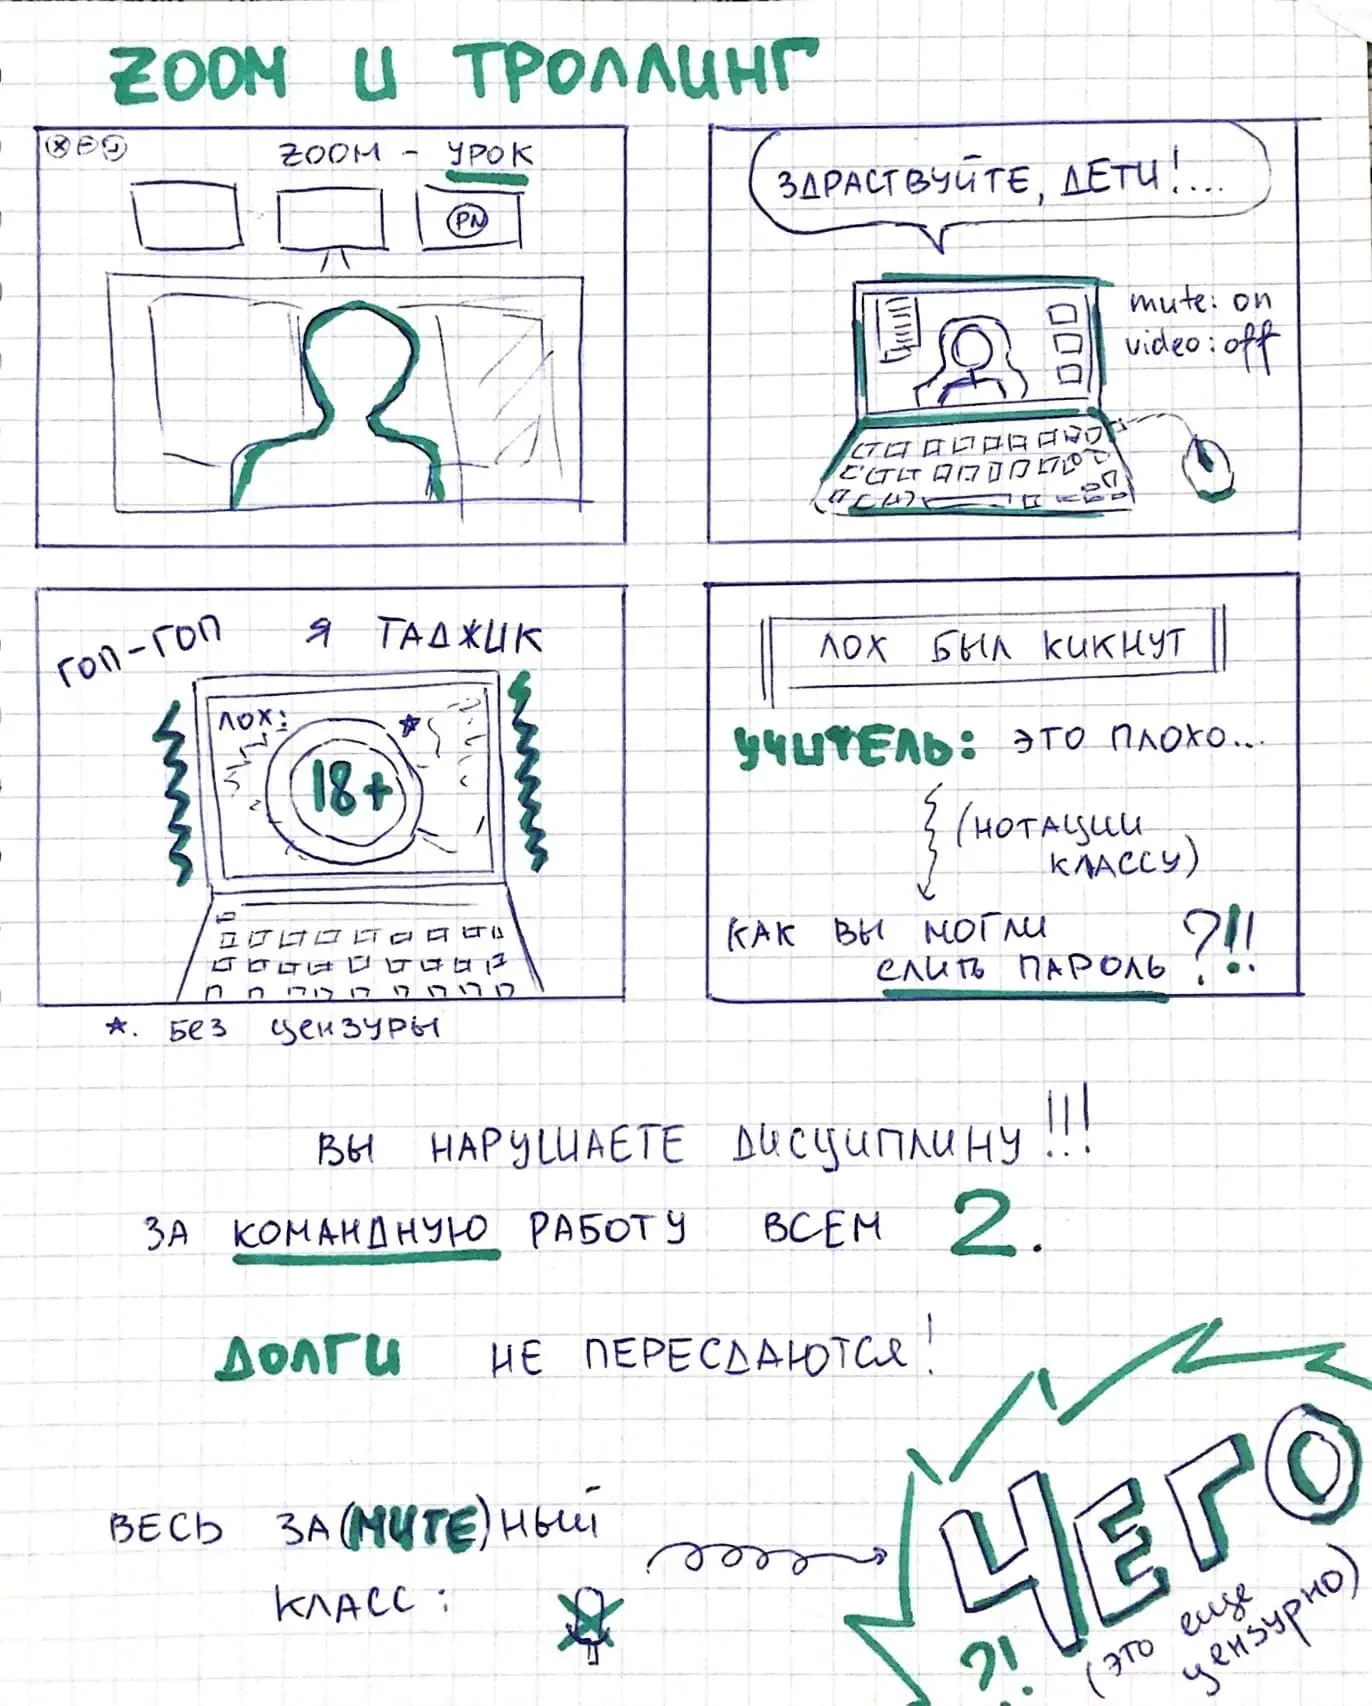 ZOOM И ТРОЛЛИНГ
ZOOM - УРОК
PN
ЗДРАСТВУЙТЕ, ДЕТИ!...
mute: on
video: off
ГОП-ГОП Я ТАДЖИК
ЛОХ:
18+
*. БЕЗ ЦЕНЗУРЫ
ЛОХ БЫЛ КИКНУТ
УЧИТЕЛЬ: ЭТО ПЛОХО...
(НОТАЦИИ
КЛАССУ)
КАК ВЫ МОГЛИ
СЛИТЬ ПАРОЛЬ ?!!
ВЫ НАРУШАЕТЕ ДИСЦИПЛИНУ!!!
ЗА КОМАНДНУЮ РАБОТУ ВСЕМ 2.
ДОЛГИ НЕ ПЕРЕСДАЮТСЯ!
ВЕСЬ ЗА(MUTE)НЫЙ
КЛАСС:
ЧЕГО
?!
(ЭТО ЕЩЕ
ЦЕНЗУРНО)